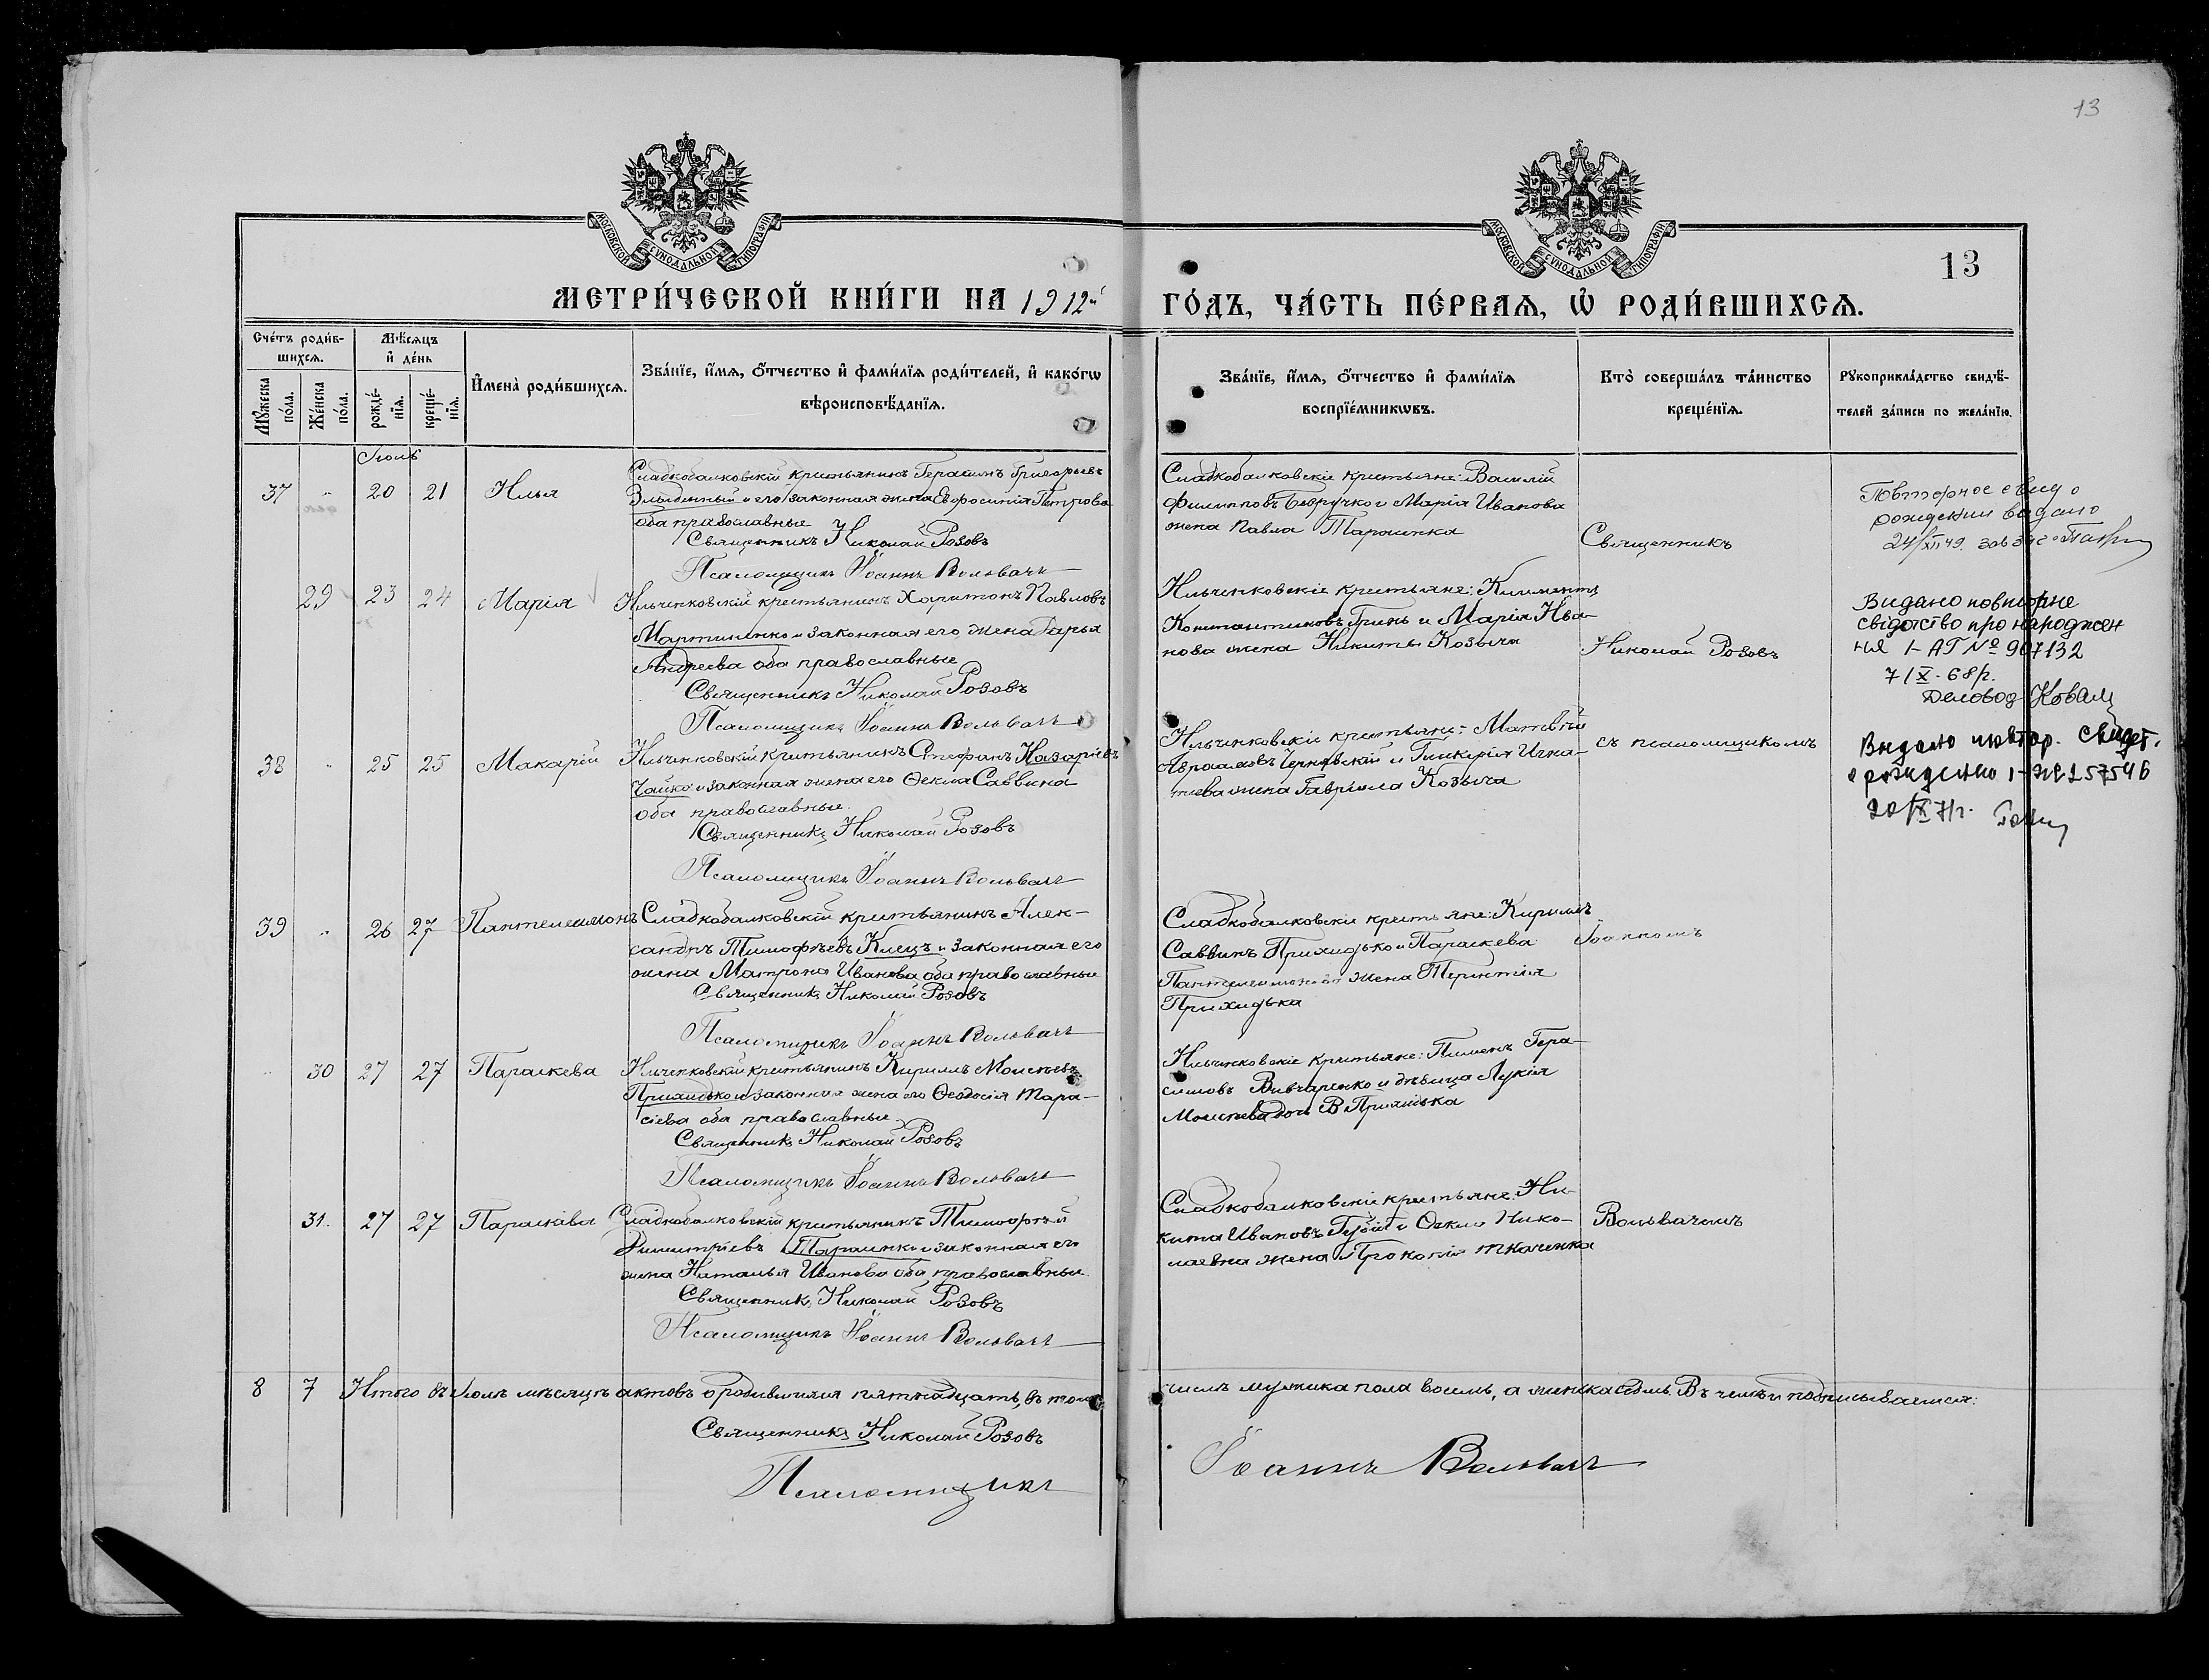 13
МОСКОВСКОЙ СѴНОДАЛЬНОЙ ТИПОГРАФІИ
МОСКОВСКОЙ СѴНОДАЛЬНОЙ ТИПОГРАФІИ
13
МЕТРИ́ЧЕСКОЙ КНИ́ГИ НА 1912й
ГО́ДЪ, ЧА́СТЬ ПЕ́РВАѦ, Ѡ҆ РОДИ́ВШИХСѦ.
Сче́тъ роди́в-
шихсѧ.
Мꙋ́жеска по́ла.
Же́нска по́ла.
Мѣ́сѧцъ
и҆ де́нь
рожде́-
нїѧ.
креще́-
нїѧ.
И҆мена̀ роди́вшихсѧ.
Зва́нїе, и҆́мѧ, ѻ҆́тчество и҆ фами́лїѧ роди́телей, и҆ како́гѡ
вѣроисповѣ́данїѧ.
Зва́нїе, и҆́мѧ, ѻ҆́тчество и҆ фами́лїѧ
воспрїе́мникѡвъ.
Кто̀ соверша́лъ та́инство
креще́нїѧ.
Рꙋкоприкла́дство свидѣ́-
телей за́писи по жела́нїю.
Іюль
37 " 20 21 Илья
Сладкобалковскій крестьянинъ Герасимъ Григорьевъ
Злыденный и его законная жена Евфросинія Петрова
оба православные
Священникъ Николай Розовъ
Псаломщикъ Іоаннъ Вольвачъ
Сладкобалковскіе крестьяне: Василій
Филипповъ и Марія Иванова
жена Павла Тараненка
Священникъ
Повторное свид о
рождении выдано
24/XII 49.
29 23 24 Марія
Ильченковскій крестьянинъ Харитонъ Павловъ
Мартиненко и законная его жена Дарья
Андреева оба православные
Священникъ Николай Розовъ
Псаломщикъ Іоаннъ Вольвачъ
Ильченковскіе крестьяне: Климентъ
Константиновъ Гринь и Марія Ива-
нова жена Никиты Козыча
Николай Розовъ
Видано повторне
свідоство про народжен
ня І-АТ № 907132
7/X-68р.
Деловод Коваль
38 " 25 25 Макарій
Ильченковскій крестьянинъ Стефанъ Назаріевъ
Чайко и законная жена его Ѳекла Саввина
оба православные.
Священникъ Николай Розовъ
Псаломщикъ Іоаннъ Вольвачъ
Ильченковскіе крестьяне: Матвѣй
Авраамовъ Чернявскій и Гликерія Игна-
тіева жена Гавріила Козыча
съ псаломщикомъ
Выдано повтор. свидет.
о рождению
20/X 71г.
39 " 26 27 Пантелеимонъ
Сладкобалковскій крестьянинъ Алек-
сандръ Тимофѣевъ Клецъ и законная его
жена Матрона Иванова оба православные
Священникъ Николай Розовъ
Псаломщикъ Іоаннъ Вольвачъ
Сладкобалковскіе крестьяне: Кириллъ
Саввинъ Прихидько и Параскева
Пантелеимонова жена Терентія
Прихидька
Іоанномъ
30 27 27 Параскева
Ильченковскій крестьянинъ Кириллъ Моисѣевъ
Прихидько и законная жена его Ѳеодосія Тара-
сіева оба православные
Священникъ Николай Розовъ
Псаломщикъ Іоаннъ Вольвачъ
Ильченковскіе крестьяне: Пименъ Гера-
симовъ Вивчаренко и дѣвица Лукія
Моисеева дочь Прихидька
31. 27 27 Параскева
Сладкобалковскій крестьянинъ Тимофѣй
Димитріевъ Тараненко и законная его
жена Наталья Иванова оба православные.
Священникъ Николай Розовъ
Псаломщикъ Іоаннъ Вольвачъ
Сладкобалковскіе крестьяне: Ни-
кита Ивановъ и Ѳекла Нико-
лаевна жена Прокопія Ткаченка
Вольвачемъ
8 7 Итого въ Іюлѣ мѣсяцѣ актовъ о родившихся пятнадцать, въ томъ
числѣ мужска пола восемь, а женска семь. Въ чемъ и подписываемся:
Священникъ Николай Розовъ
Псаломщикъ
Іоаннъ Вольвачъ